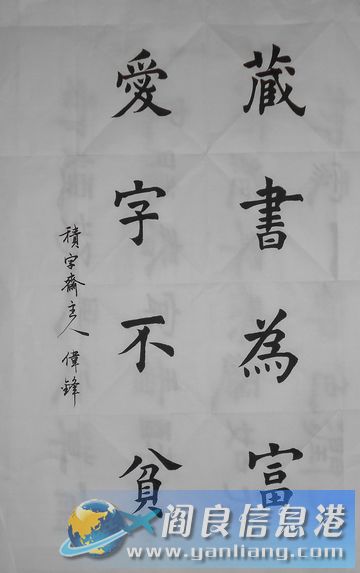 藏書為富
愛字不貧
積字齋主人偉鋒
阎良信息港
www.yanliang.com